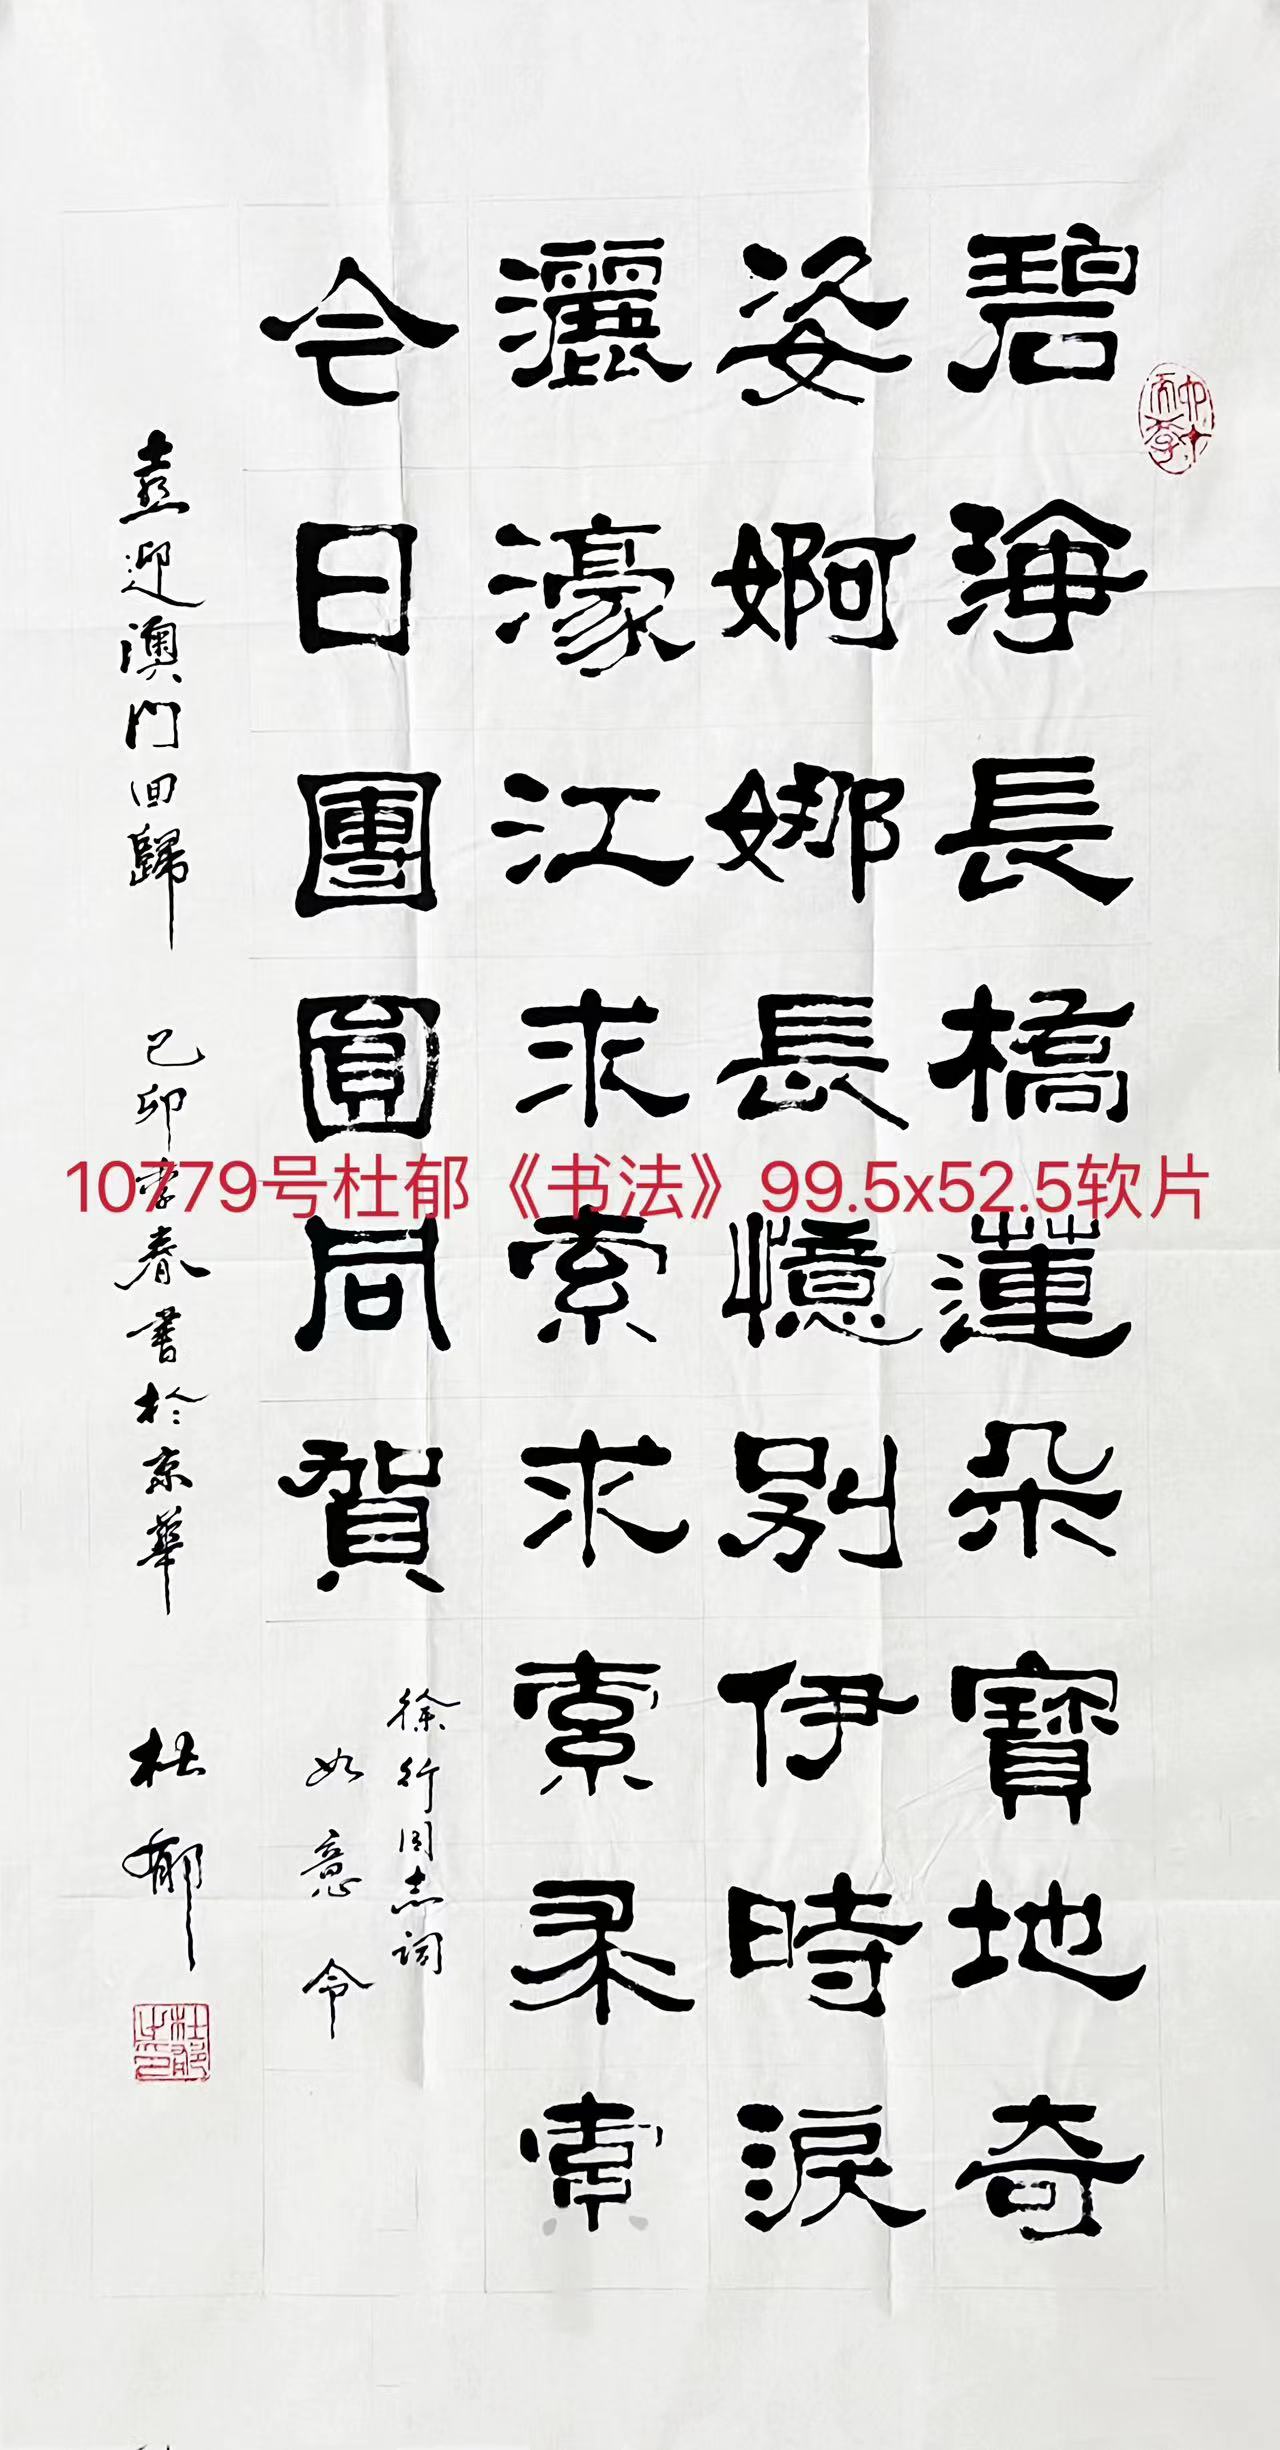 碧海長橋蓮朵寶地奇
姿婀娜長憶別伊時淚
灑濠江求索求索求索
今日團圓同賀
徐行同志詞
如意令
喜迎澳門回歸 己卯季春書於京華 杜郁
杜郁之印
10779号杜郁《书法》99.5x52.5软片